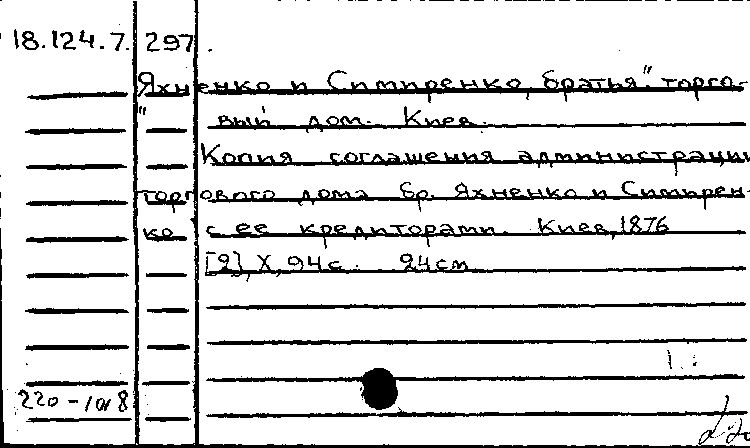 18.124.7. 297.
Яхненко и Симиренко, братья" торго-
" вый дом. Киев.
Копия соглашения администрации
торгового дома бр. Яхненко и Симирен-
ко с ее кредиторами. Киев, 1876
[2], X, 94 с. 24 см
220-1018